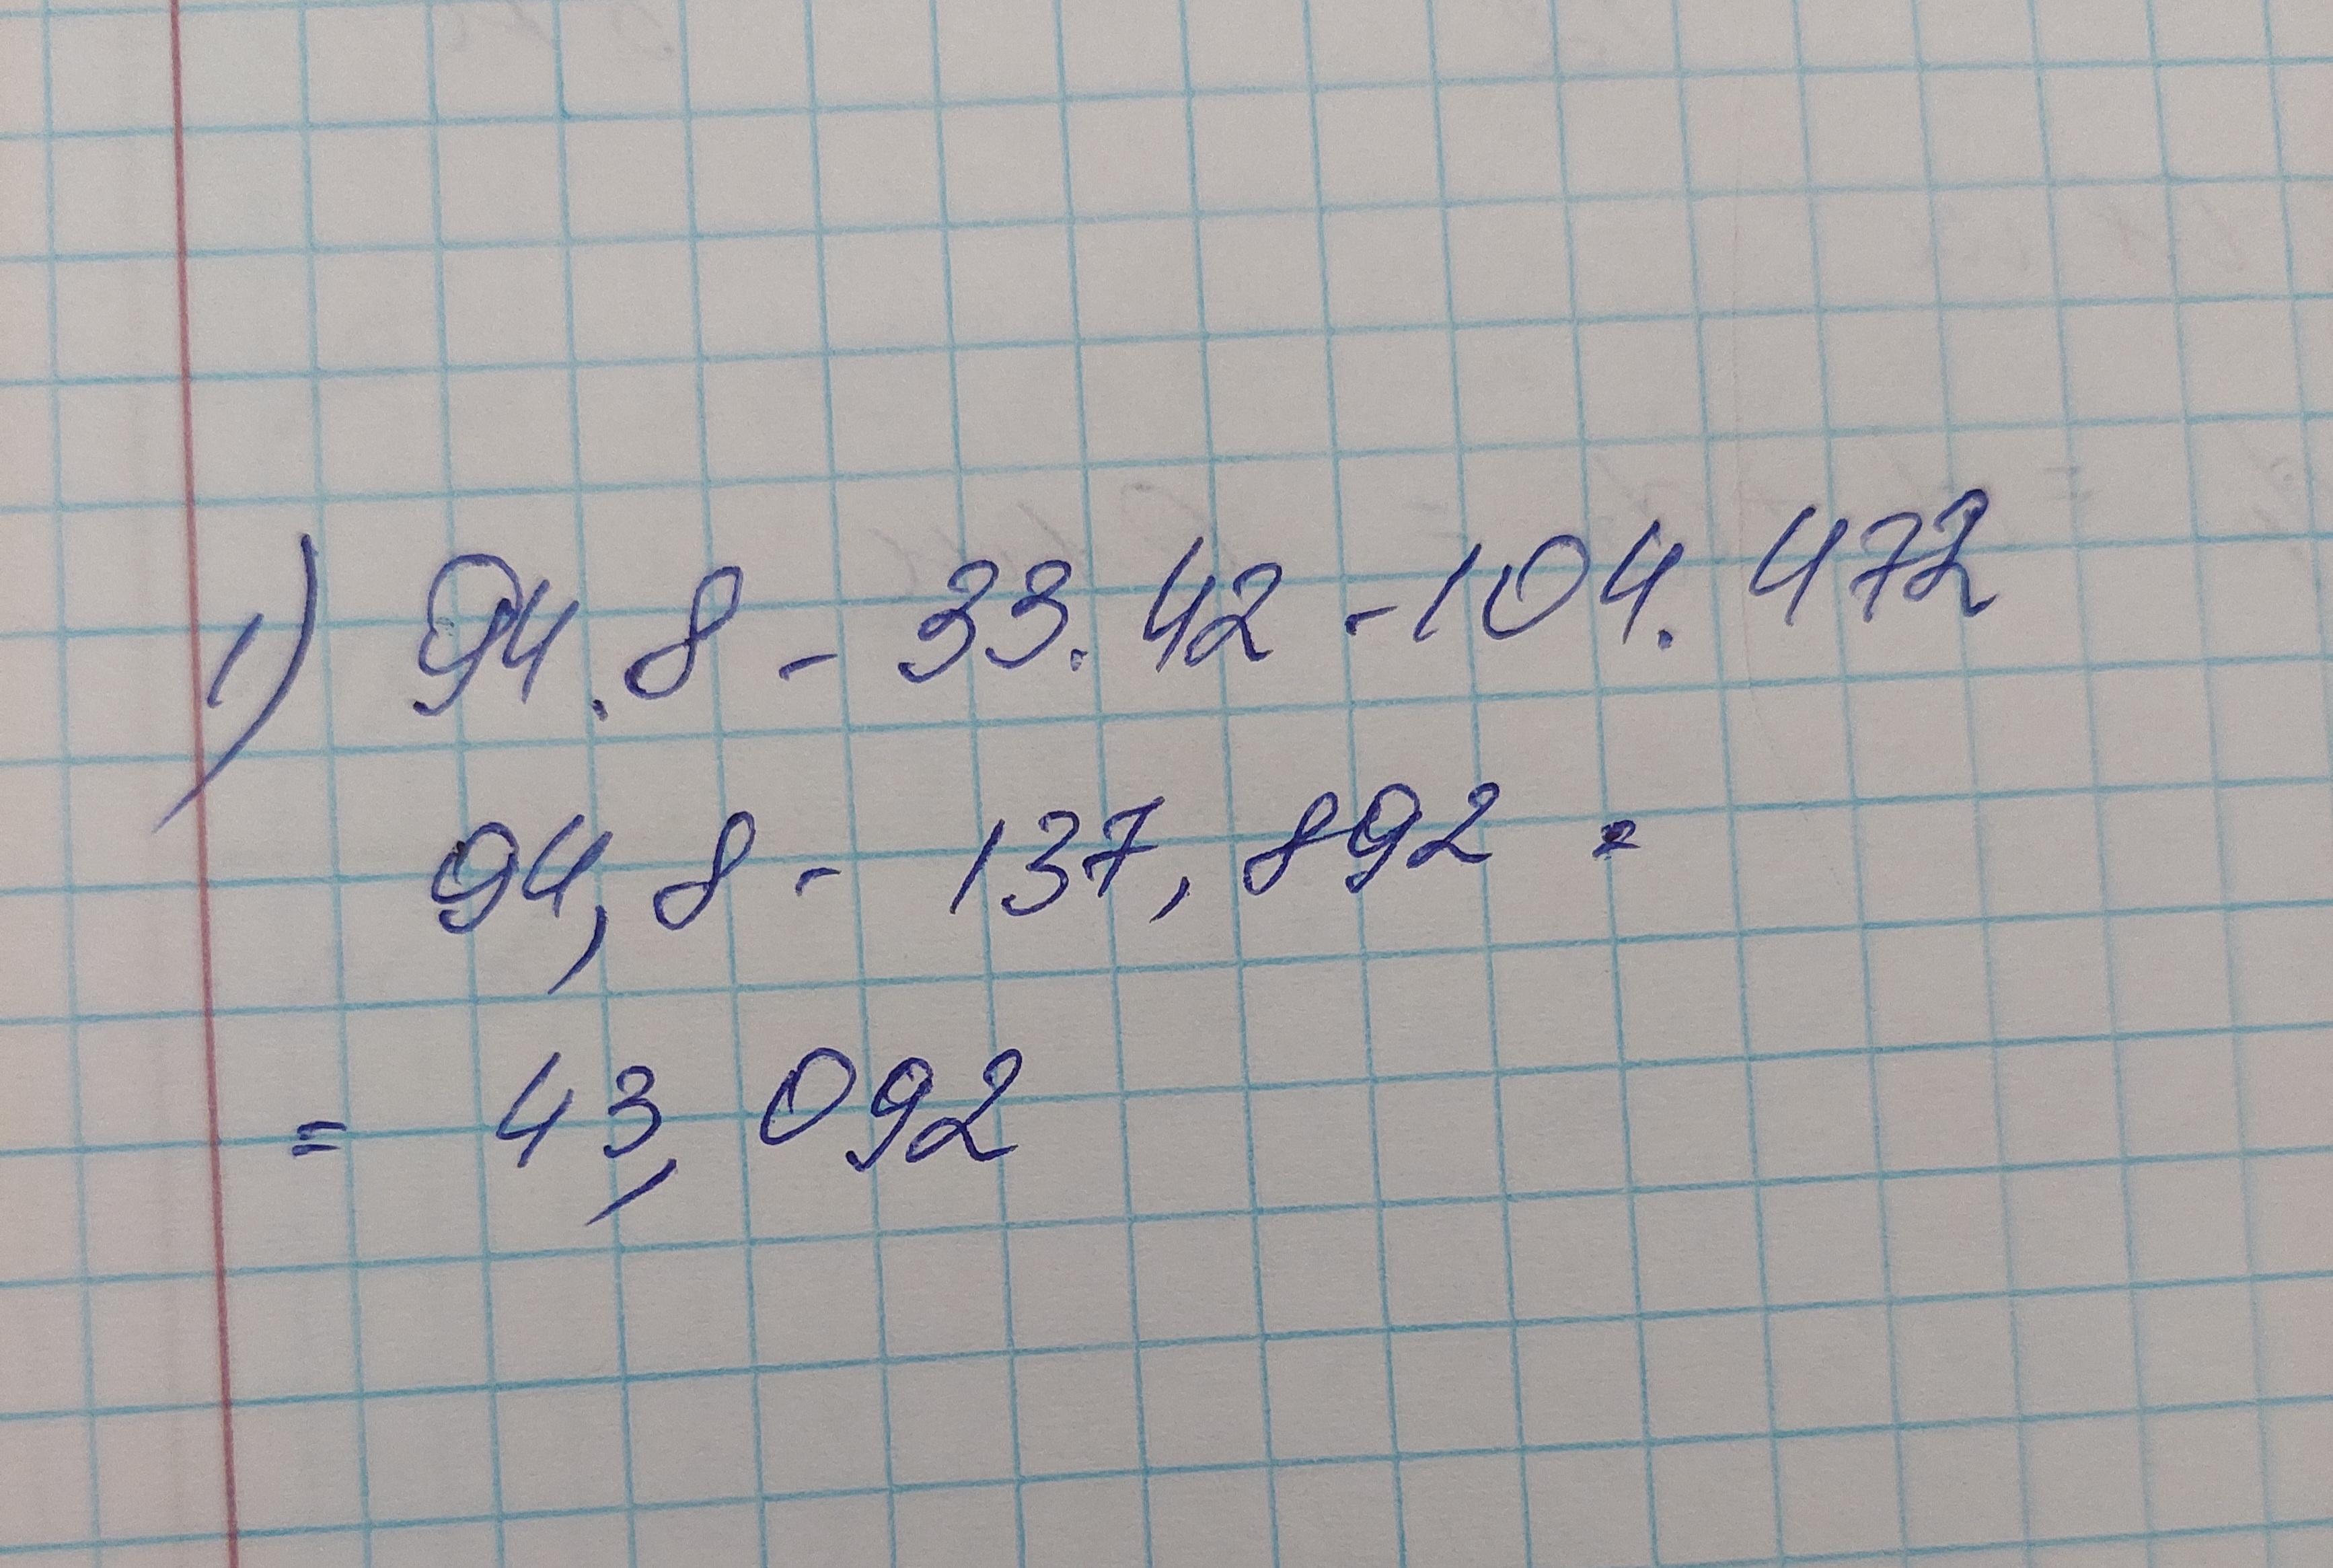 1) 94.8 - 33.42 - 104.472
94,8 - 137,892 =
= 43,092